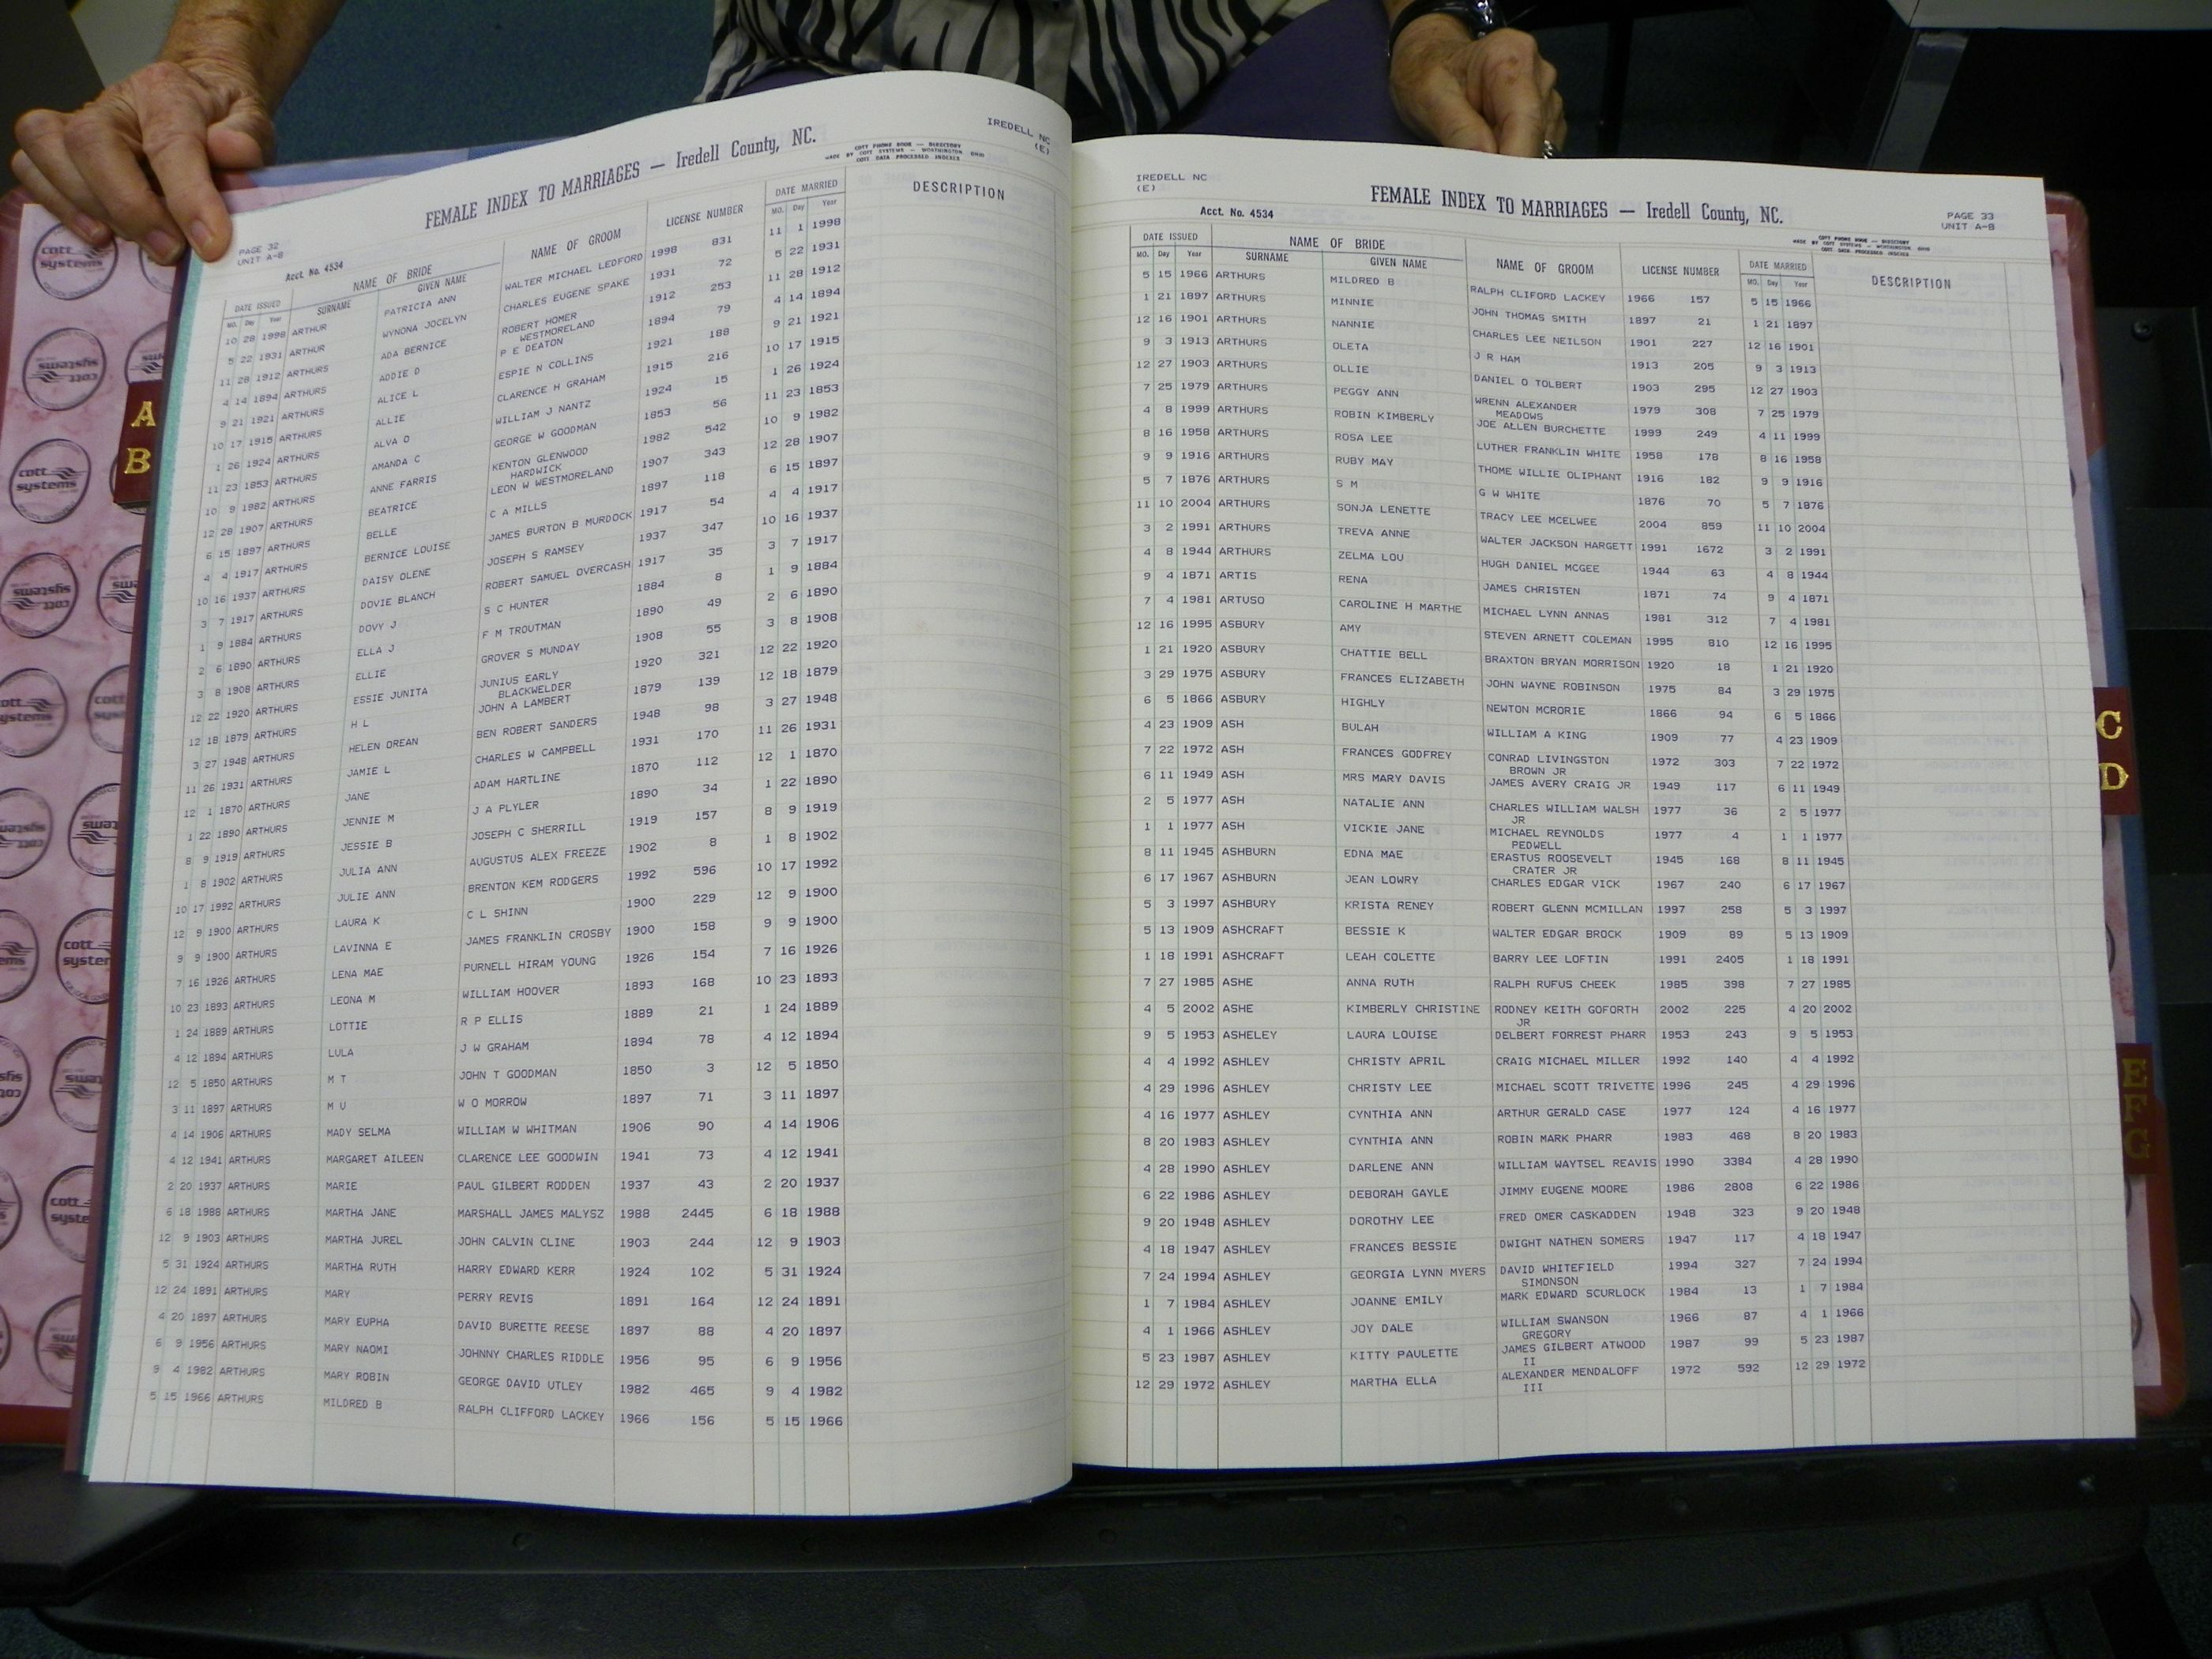 IREDELL NC
(E)
FEMALE INDEX TO MARRIAGES — Iredell County, NC.
COTT PHONE BOOK — DIRECTORY
MADE BY COTT SYSTEMS — WORTHINGTON, OHIO
COTT DATA PROCESSED INDEXES
PAGE 32
UNIT A-B
Acct. No. 4534
DATE ISSUED NAME OF BRIDE NAME OF GROOM LICENSE NUMBER DATE MARRIED DESCRIPTION
MO. Day Year SURNAME GIVEN NAME MO. Day Year
10 28 1998 ARTHUR PATRICIA ANN WALTER MICHAEL LEDFORD 1998 831 11 1 1998
5 22 1931 ARTHUR WYNONA JOCELYN CHARLES EUGENE SPAKE 1931 72 5 22 1931
11 28 1912 ARTHURS ADA BERNICE ROBERT HOMER 1912 253 11 28 1912
WESTMORELAND
4 14 1894 ARTHURS ADDIE D P E DEATON 1894 79 4 14 1894
9 21 1921 ARTHURS ALICE L ESPIE N COLLINS 1921 188 9 21 1921
10 17 1915 ARTHURS ALLIE CLARENCE H GRAHAM 1915 216 10 17 1915
1 26 1924 ARTHURS ALVA O WILLIAM J NANTZ 1924 15 1 26 1924
11 23 1853 ARTHURS AMANDA C GEORGE W GOODMAN 1853 56 11 23 1853
10 9 1982 ARTHURS ANNE FARRIS KENTON GLENWOOD 1982 542 10 9 1982
HARDWICK
12 28 1907 ARTHURS BEATRICE LEON W WESTMORELAND 1907 343 12 28 1907
6 15 1897 ARTHURS BELLE C A MILLS 1897 118 6 15 1897
4 4 1917 ARTHURS BERNICE LOUISE JAMES BURTON B MURDOCK 1917 54 4 4 1917
10 16 1937 ARTHURS DAISY OLENE JOSEPH S RAMSEY 1937 347 10 16 1937
3 7 1917 ARTHURS DOVIE BLANCH ROBERT SAMUEL OVERCASH 1917 35 3 7 1917
1 9 1884 ARTHURS DOVY J S C HUNTER 1884 8 1 9 1884
2 6 1890 ARTHURS ELLA J F M TROUTMAN 1890 49 2 6 1890
3 8 1908 ARTHURS ELLIE GROVER S MUNDAY 1908 55 3 8 1908
12 22 1920 ARTHURS ESSIE JUNITA JUNIUS EARLY 1920 321 12 22 1920
BLACKWELDER
12 18 1879 ARTHURS H L JOHN A LAMBERT 1879 139 12 18 1879
3 27 1948 ARTHURS HELEN OREAN BEN ROBERT SANDERS 1948 98 3 27 1948
11 26 1931 ARTHURS JAMIE L CHARLES W CAMPBELL 1931 170 11 26 1931
12 1 1870 ARTHURS JANE ADAM HARTLINE 1870 112 12 1 1870
1 22 1890 ARTHURS JENNIE M J A PLYLER 1890 34 1 22 1890
8 9 1919 ARTHURS JESSIE B JOSEPH C SHERRILL 1919 157 8 9 1919
1 8 1902 ARTHURS JULIA ANN AUGUSTUS ALEX FREEZE 1902 8 1 8 1902
10 17 1992 ARTHURS JULIE ANN BRENTON KEM RODGERS 1992 596 10 17 1992
12 9 1900 ARTHURS LAURA K C L SHINN 1900 229 12 9 1900
9 9 1900 ARTHURS LAVINNA E JAMES FRANKLIN CROSBY 1900 158 9 9 1900
7 16 1926 ARTHURS LENA MAE PURNELL HIRAM YOUNG 1926 154 7 16 1926
10 23 1893 ARTHURS LEONA M WILLIAM HOOVER 1893 168 10 23 1893
1 24 1889 ARTHURS LOTTIE R P ELLIS 1889 21 1 24 1889
4 12 1894 ARTHURS LULA J W GRAHAM 1894 78 4 12 1894
12 5 1850 ARTHURS M T JOHN T GOODMAN 1850 3 12 5 1850
3 11 1897 ARTHURS M U W O MORROW 1897 71 3 11 1897
4 14 1906 ARTHURS MADY SELMA WILLIAM W WHITMAN 1906 90 4 14 1906
4 12 1941 ARTHURS MARGARET AILEEN CLARENCE LEE GOODWIN 1941 73 4 12 1941
2 20 1937 ARTHURS MARIE PAUL GILBERT RODDEN 1937 43 2 20 1937
6 18 1988 ARTHURS MARTHA JANE MARSHALL JAMES MALYSZ 1988 2445 6 18 1988
12 9 1903 ARTHURS MARTHA JUREL JOHN CALVIN CLINE 1903 244 12 9 1903
5 31 1924 ARTHURS MARTHA RUTH HARRY EDWARD KERR 1924 102 5 31 1924
12 24 1891 ARTHURS MARY PERRY REVIS 1891 164 12 24 1891
4 20 1897 ARTHURS MARY EUPHA DAVID BURETTE REESE 1897 88 4 20 1897
6 9 1956 ARTHURS MARY NAOMI JOHNNY CHARLES RIDDLE 1956 95 6 9 1956
9 4 1982 ARTHURS MARY ROBIN GEORGE DAVID UTLEY 1982 465 9 4 1982
5 15 1966 ARTHURS MILDRED B RALPH CLIFFORD LACKEY 1966 156 5 15 1966
IREDELL NC
(E)
FEMALE INDEX TO MARRIAGES — Iredell County, NC.
Acct. No. 4534
PAGE 33
UNIT A-B
COTT PHONE BOOK — DIRECTORY
MADE BY COTT SYSTEMS — WORTHINGTON, OHIO
COTT DATA PROCESSED INDEXES
DATE ISSUED NAME OF BRIDE NAME OF GROOM LICENSE NUMBER DATE MARRIED DESCRIPTION
MO. Day Year SURNAME GIVEN NAME MO. Day Year
5 15 1966 ARTHURS MILDRED B RALPH CLIFORD LACKEY 1966 157 5 15 1966
1 21 1897 ARTHURS MINNIE JOHN THOMAS SMITH 1897 21 1 21 1897
12 16 1901 ARTHURS NANNIE CHARLES LEE NEILSON 1901 227 12 16 1901
9 3 1913 ARTHURS OLETA J R HAM 1913 205 9 3 1913
12 27 1903 ARTHURS OLLIE DANIEL O TOLBERT 1903 295 12 27 1903
7 25 1979 ARTHURS PEGGY ANN WRENN ALEXANDER 1979 308 7 25 1979
MEADOWS
4 8 1999 ARTHURS ROBIN KIMBERLY JOE ALLEN BURCHETTE 1999 249 4 11 1999
8 16 1958 ARTHURS ROSA LEE LUTHER FRANKLIN WHITE 1958 178 8 16 1958
9 9 1916 ARTHURS RUBY MAY THOME WILLIE OLIPHANT 1916 182 9 9 1916
5 7 1876 ARTHURS S M G W WHITE 1876 70 5 7 1876
11 10 2004 ARTHURS SONJA LENETTE TRACY LEE MCELWEE 2004 859 11 10 2004
3 2 1991 ARTHURS TREVA ANNE WALTER JACKSON HARGETT 1991 1672 3 2 1991
4 8 1944 ARTHURS ZELMA LOU HUGH DANIEL MCGEE 1944 63 4 8 1944
9 4 1871 ARTIS RENA JAMES CHRISTEN 1871 74 9 4 1871
7 4 1981 ARTUSO CAROLINE H MARTHE MICHAEL LYNN ANNAS 1981 312 7 4 1981
12 16 1995 ASBURY AMY STEVEN ARNETT COLEMAN 1995 810 12 16 1995
1 21 1920 ASBURY CHATTIE BELL BRAXTON BRYAN MORRISON 1920 18 1 21 1920
3 29 1975 ASBURY FRANCES ELIZABETH JOHN WAYNE ROBINSON 1975 84 3 29 1975
6 5 1866 ASBURY HIGHLY NEWTON MCRORIE 1866 94 6 5 1866
4 23 1909 ASH BULAH WILLIAM A KING 1909 77 4 23 1909
7 22 1972 ASH FRANCES GODFREY CONRAD LIVINGSTON 1972 303 7 22 1972
BROWN JR
6 11 1949 ASH MRS MARY DAVIS JAMES AVERY CRAIG JR 1949 117 6 11 1949
2 5 1977 ASH NATALIE ANN CHARLES WILLIAM WALSH 1977 36 2 5 1977
JR
1 1 1977 ASH VICKIE JANE MICHAEL REYNOLDS 1977 4 1 1 1977
PEDWELL
8 11 1945 ASHBURN EDNA MAE ERASTUS ROOSEVELT 1945 168 8 11 1945
CRATER JR
6 17 1967 ASHBURN JEAN LOWRY CHARLES EDGAR VICK 1967 240 6 17 1967
5 3 1997 ASHBURY KRISTA RENEY ROBERT GLENN MCMILLAN 1997 258 5 3 1997
5 13 1909 ASHCRAFT BESSIE K WALTER EDGAR BROCK 1909 89 5 13 1909
1 18 1991 ASHCRAFT LEAH COLETTE BARRY LEE LOFTIN 1991 2405 1 18 1991
7 27 1985 ASHE ANNA RUTH RALPH RUFUS CHEEK 1985 398 7 27 1985
4 5 2002 ASHE KIMBERLY CHRISTINE RODNEY KEITH GOFORTH 2002 225 4 20 2002
JR
9 5 1953 ASHELEY LAURA LOUISE DELBERT FORREST PHARR 1953 243 9 5 1953
4 4 1992 ASHLEY CHRISTY APRIL CRAIG MICHAEL MILLER 1992 140 4 4 1992
4 29 1996 ASHLEY CHRISTY LEE MICHAEL SCOTT TRIVETTE 1996 245 4 29 1996
4 16 1977 ASHLEY CYNTHIA ANN ARTHUR GERALD CASE 1977 124 4 16 1977
8 20 1983 ASHLEY CYNTHIA ANN ROBIN MARK PHARR 1983 468 8 20 1983
4 28 1990 ASHLEY DARLENE ANN WILLIAM WAYTSEL REAVIS 1990 3384 4 28 1990
6 22 1986 ASHLEY DEBORAH GAYLE JIMMY EUGENE MOORE 1986 2808 6 22 1986
9 20 1948 ASHLEY DOROTHY LEE FRED OMER CASKADDEN 1948 323 9 20 1948
4 18 1947 ASHLEY FRANCES BESSIE DWIGHT NATHEN SOMERS 1947 117 4 18 1947
7 24 1994 ASHLEY GEORGIA LYNN MYERS DAVID WHITEFIELD 1994 327 7 24 1994
SIMONSON
1 7 1984 ASHLEY JOANNE EMILY MARK EDWARD SCURLOCK 1984 13 1 7 1984
4 1 1966 ASHLEY JOY DALE WILLIAM SWANSON 1966 87 4 1 1966
GREGORY
5 23 1987 ASHLEY KITTY PAULETTE JAMES GILBERT ATWOOD 1987 99 5 23 1987
II
12 29 1972 ASHLEY MARTHA ELLA ALEXANDER MENDALOFF 1972 592 12 29 1972
III
A
B
C
D
E
F
G
cott
systems